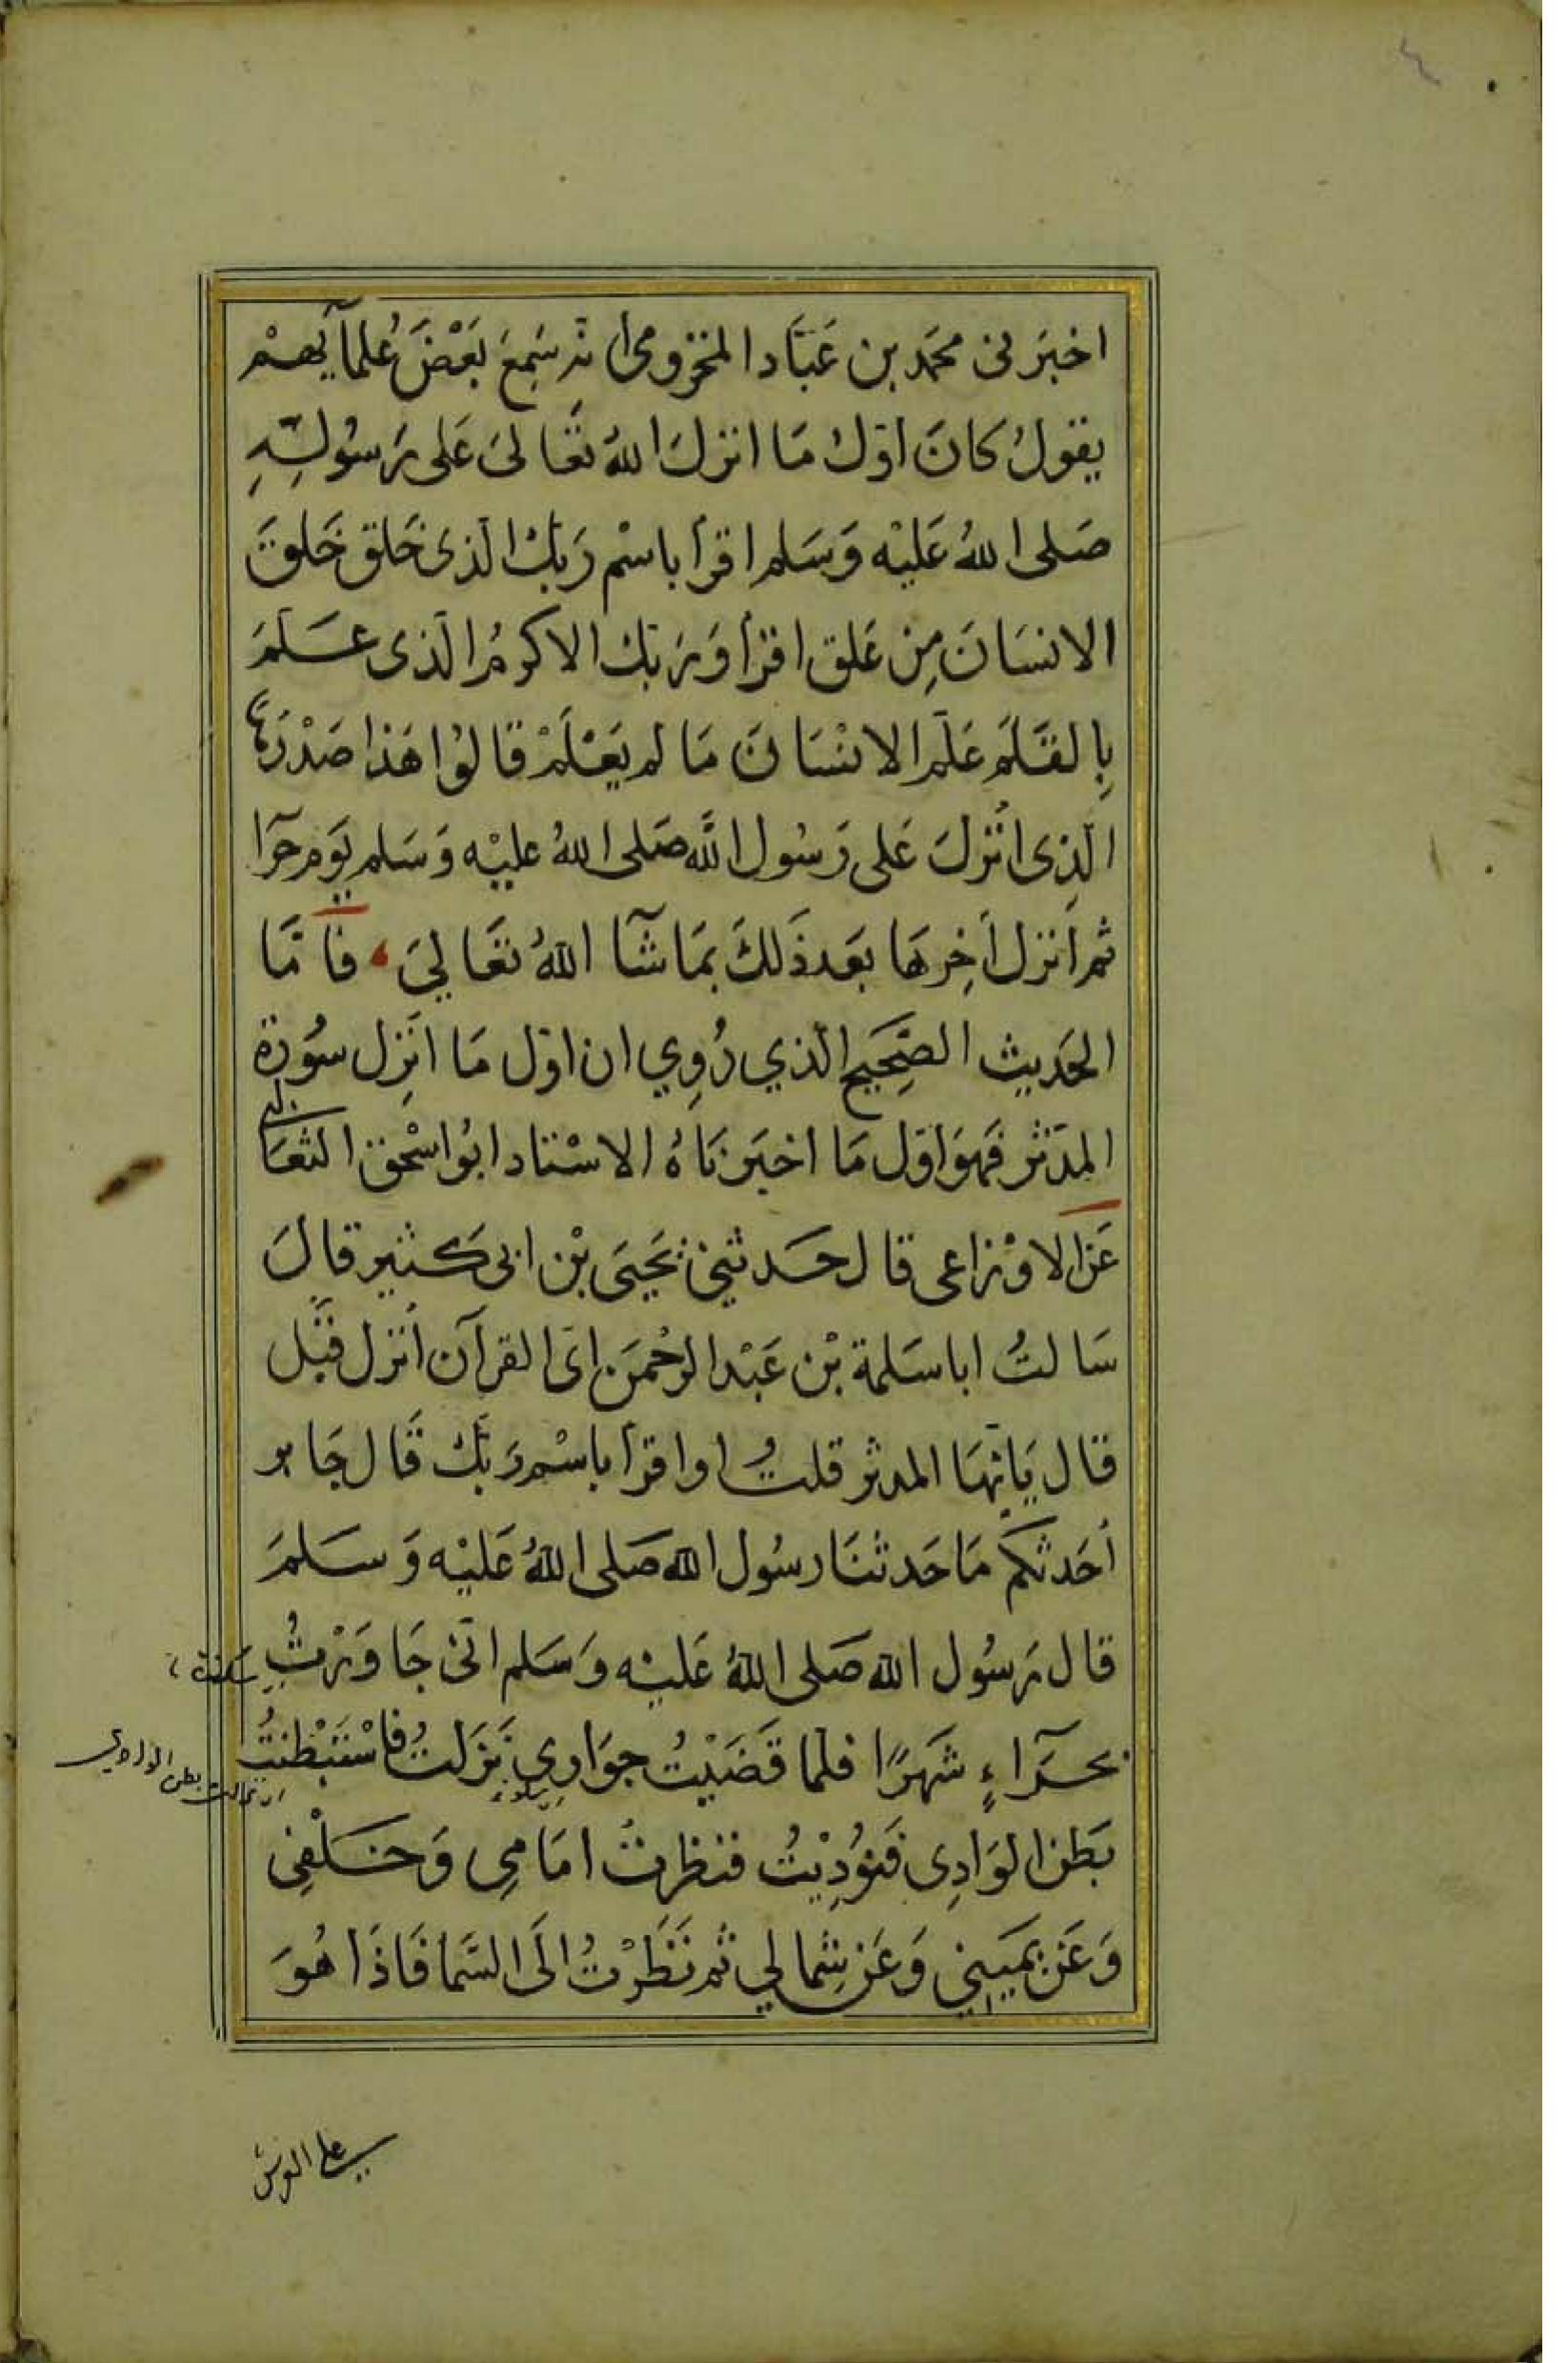 ٤
اخبَرنى محمَد بن عَبَّاد المخزومى أنه سَمِعَ بَعْضَ عُلمآيهمْ
يقولُ كانَ اوّل مَا انزلَ اللهُ تعَالىَ عَلى رَسُولِهِ
صَلى اللهُ عَليْه وَسَلم اقرأ باسْم رَبّك الّذى خَلق خَلقَ
الانسَانَ مِن عَلق اقرأ وَرَبّك الاكرمُ الّذى عَسلّمَ
بِالقَلَم عَلّم الانسَانَ مَا لم يَعْلَمْ قالوُا هَذا صَدْرهَا
الّذِى اُنْزلَ عَلى رَسُول اللَّه صَلى اللهُ عليْه وَسَلم يَوم حرَآ
ثم اَنزل اَخِرهَا بَعَد ذَلكَ بمَا شآَ اللهُ تعَاليَ ، فأمّا
الحَديث الصَّحِيح الّذي رُوِي ان اوّل مَا انَزِل سُورة
المدّثر فَهوَ اوّل مَا اخبَرنَاهُ الاسْتاد ابُو اسْحٰق الثعَالبى
عَن الاوْزاعى قال حَدثنِى يَحيَى بْن ابى كَثير قالَ
سَالتُ ابا سَلمة بْن عَبْد الرحْمَن اىّ القرآن اُنزل قَبْل
قال يَايّهَا المدثر قلتُ او اقرأ باسْم رَبّك قَال جَابر
اُحَدثكم مَا حَدثنَا رسُول الله صَلى اللهُ عَليْه وَسَلمَ
قال رَسُول الله صَلى اللهُ عَليْه وَسَلم انّى جَاوَرْتُ
بحرَآءٍ شَهرًا فلمّا قَضَيْتُ جِوَارِى نَزَلتُ فاسْتَبْطَنتُ
بَطن الوَادِى فَنوُدِيْتُ فنظرتُ امَامِى وَخَلْفِى
وَعَن يَمَيِني وَعَن شِمالي ثم نَظَرْتُ الَى السَّما فَاذَا هُوَ
على العرش